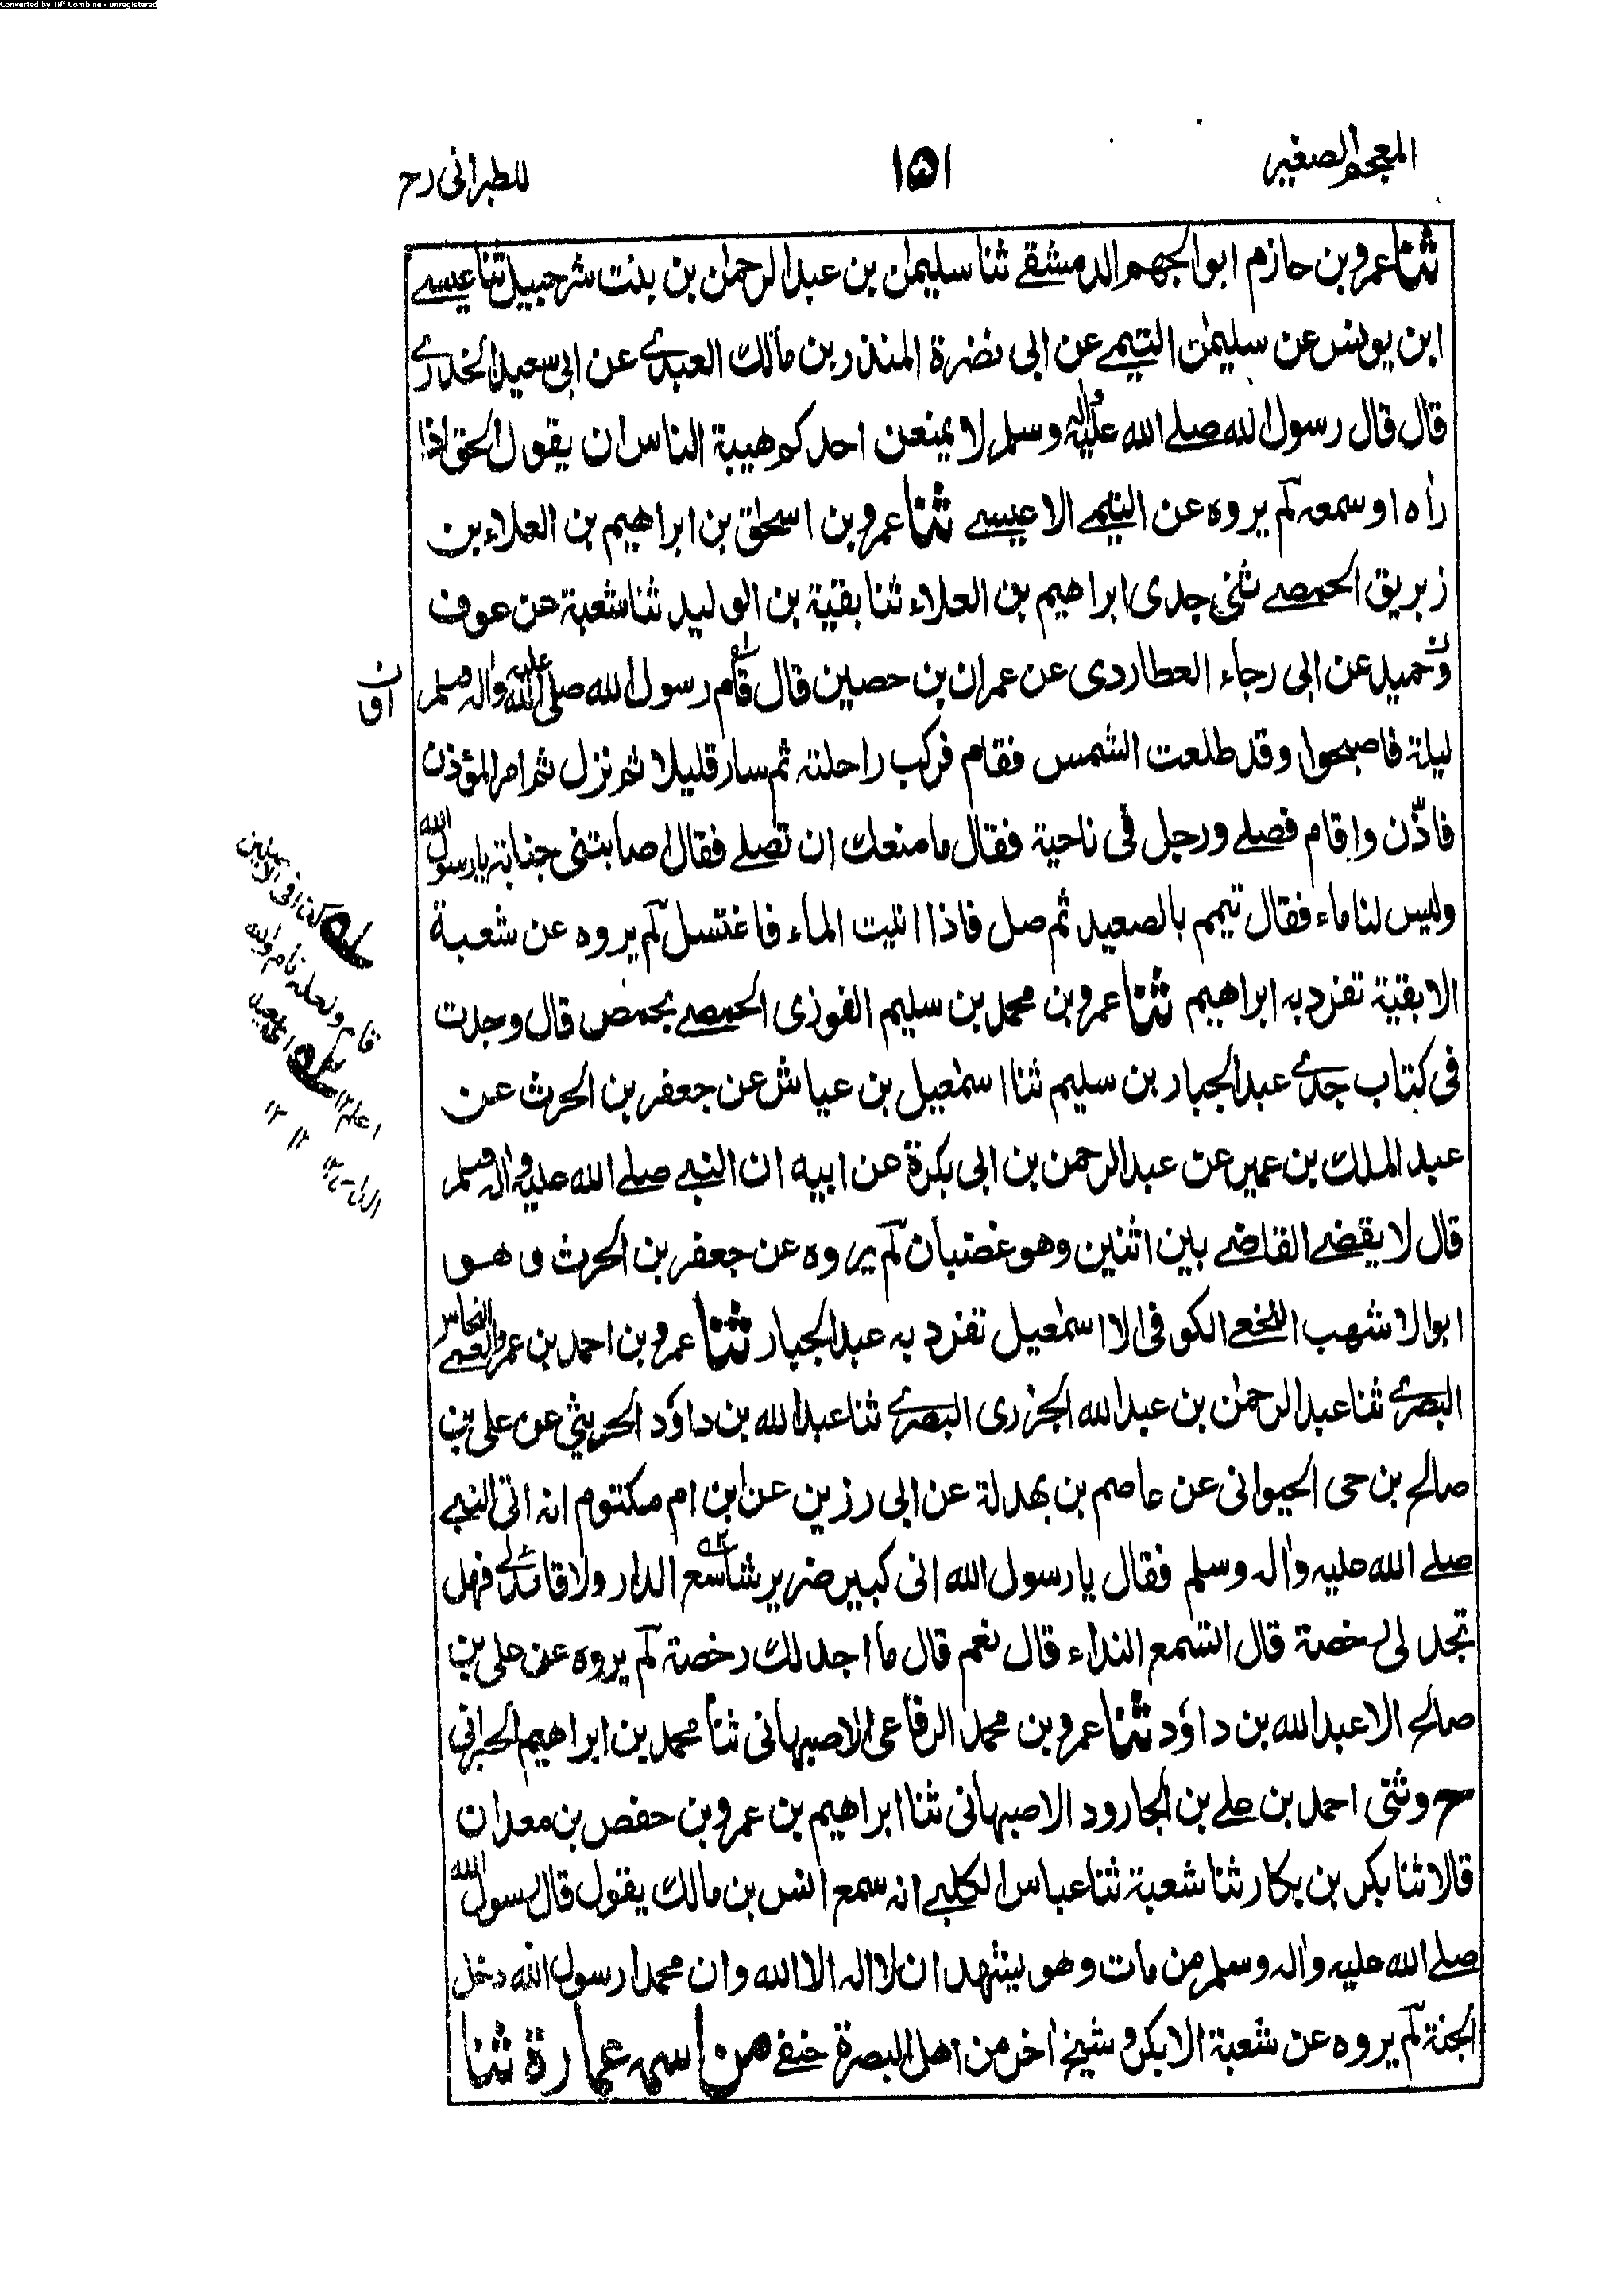 Converted by Tiff Combine - unregistered
المعجم الصغير
١٥١
للطبرانی رح
ثنا عمرو بن حازم ابو الجهم الدمشقے ثنا سلیمٰن بن عبد الرحمٰن بن بنت شرحبیل ثنا عیسے
ابن یونس عن سلیمٰن التیمے عن ابی نضرة المنذر بن مالك العبدے عن ابی سعید الخدرے
قال قال رسول الله صلے الله علیه واٰله وسلم لا یمنعن احدکم هیبة الناس ان یقول الحق اذا
راٰه او سمعه لم یروه عن التیمے الا عیسے ثنا عمرو بن اسحٰق بن ابراهیم بن العلاء بن
زبریق الحمصے ثنی جدی ابراهیم بن العلاء ثنا بقیة بن الولید ثنا شعبة عن عوف
وحمید عن ابی رجاء العطاردی عن عمران بن حصین قال قام رسول الله صلی الله علیه واٰله وسلم
لیلة فاصبحوا وقد طلعت الشمس فقام فرکب راحلته ثم سار قلیلا ثم نزل ثم امر المؤذن
فاذّن واقام فصلے ورجل فی ناحیة فقال ما منعك ان تصلے فقال اصابتنی جنابة یا رسول الله
ولیس لنا ماء فقال تیمم بالصعید ثم صل فاذا اتیت الماء فاغتسل لم یروه عن شعبة
الا بقیة تفرد به ابراهیم ثنا عمرو بن محمد بن سلیم الفوزی الحمصے بحمص قال وجدت
فی کتاب جدے عبد الجبار بن سلیم ثنا اسمٰعیل بن عیاش عن جعفر بن الحرث عن
عبد الملك بن عمیر عن عبد الرحمن بن ابی بکرة عن ابیه ان النبے صلے الله علیه واٰله وسلم
قال لا یقضے القاضے بین اثنین وهو غضبان لم یروه عن جعفر بن الحرث وهو
ابو الاشهب النخعے الکوفی الا اسمٰعیل تفرد به عبد الجبار ثنا عمرو بن احمد بن عمرو العمے النخاس
البصرے ثنا عبد الرحمٰن بن عبد الله الجزری البصرے ثنا عبد الله بن داؤد الخریبی عن علی بن
صالح بن حی الحیوانی عن عاصم بن بهدلة عن ابی رزین عن ابن ام مکتوم انه اتی النبے
صلے الله علیه واٰله وسلم فقال یا رسول الله انی کبیر ضریر شاسع الدار ولا قائد لے فهل
تجد لی رخصة قال اتسمع النداء قال نعم قال ما اجد لك رخصة لم یروه عن علی بن
صالح الا عبد الله بن داؤد ثنا عمرو بن محمد الرفاعی الاصبهانی ثنا محمد بن ابراهیم الحرانی
ح وثنی احمد بن علے بن الجارود الاصبهانی ثنا ابراهیم بن عمرو بن حفص بن معدان
قالا ثنا بکر بن بکار ثنا شعبة ثنا عباس الکلبے انه سمع انس بن مالك یقول قال رسول الله
صلے الله علیه واٰله وسلم من مات وهو یشهد ان لا اله الا الله وان محمدا رسول الله دخل
الجنة لم یروه عن شعبة الا بکر وشیخ اٰخر من اهل البصرة حنفے من اسمه عمارة ثنا